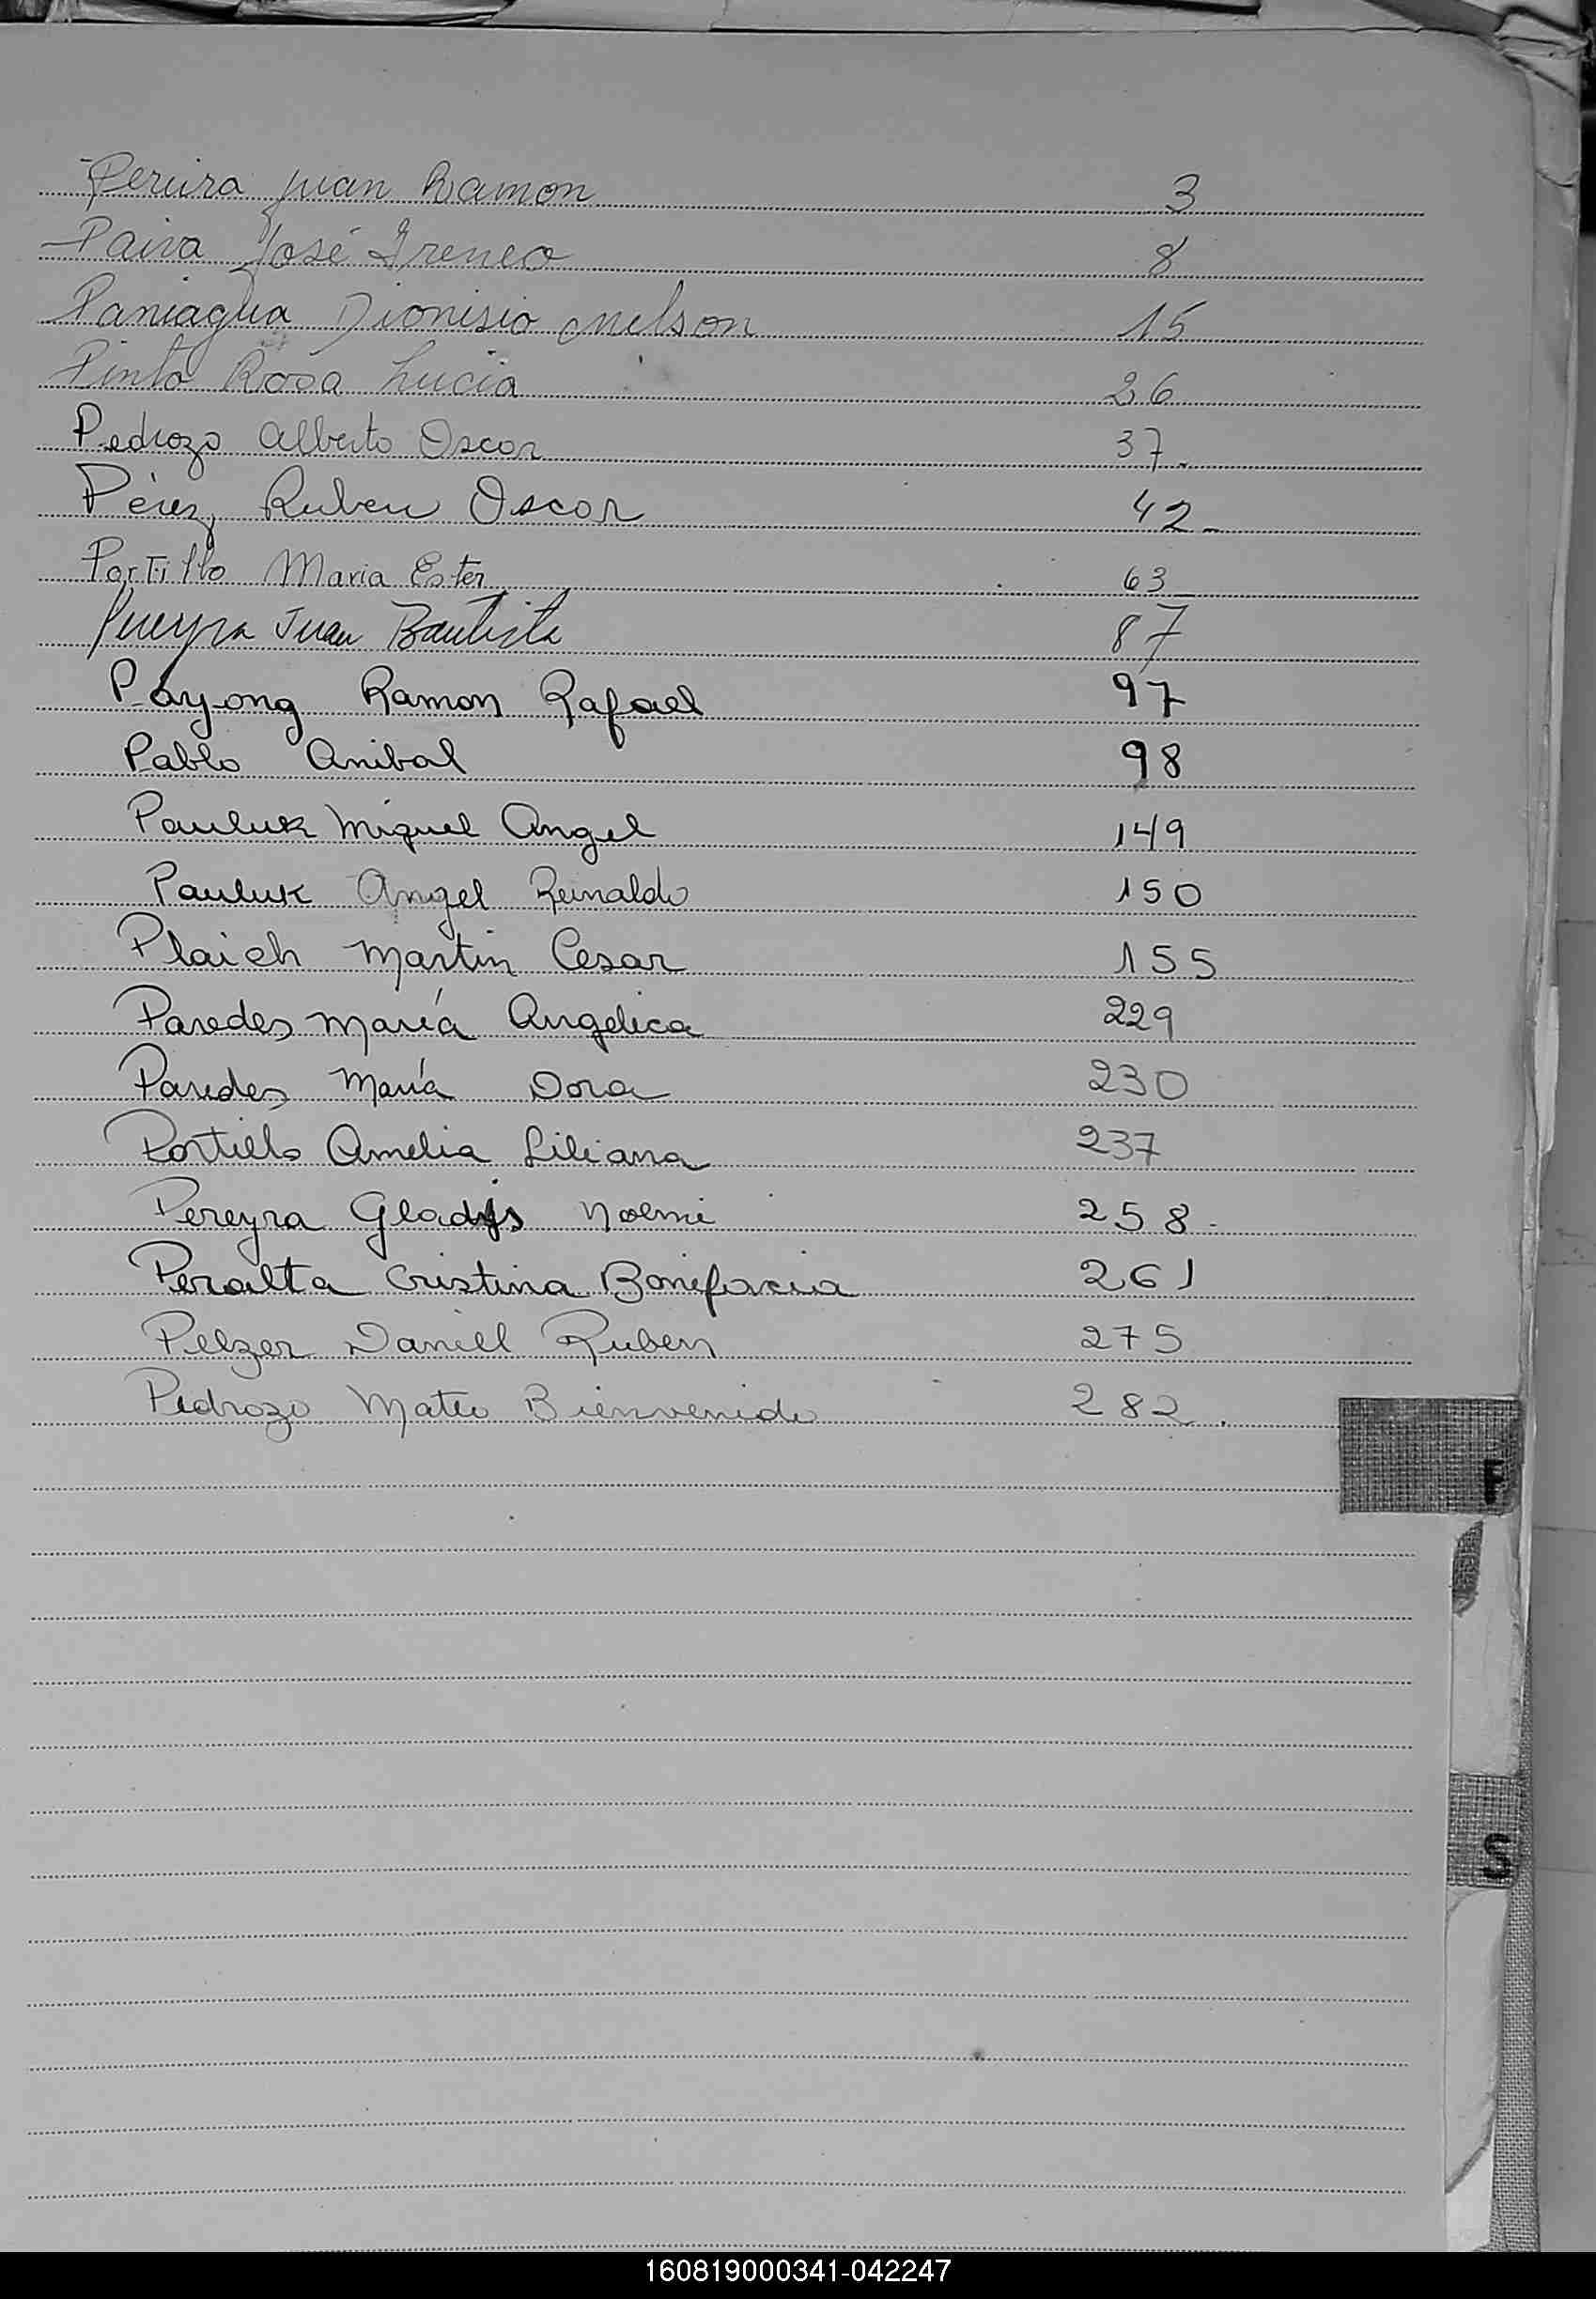 Pereira Juan Ramon 3
Paiva José Ireneo 8
Paniagua Dionisio Nelson 15
Pinto Rosa Lucia 26
Pedrozo Alberto Oscar 37.
Pérez, Ruben Oscar 42-
Portillo Maria Ester 63
Pereyra Juan Bautista 87
Payong Ramon Rafael 97
Pablo Anibal 98
Pauluk Miguel Angel 149
Pauluk Angel Reinaldo 150
Plaich Martin Cesar 155
Paredes María Angelica 229
Paredes María Dora 230
Portillo Amelia Liliana 237
Pereyra Gladys Noemi 258.
Peralta Cristina Bonifacia 261
Pelzer Daniel Ruben 275
Pedrozo Mateo Bienvenido 282.
P
S
160819000341-042247